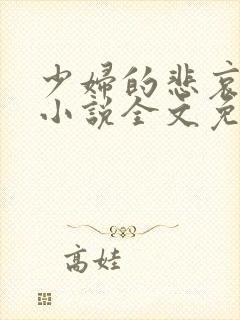 少婦的悲哀
小說全文免
高娃